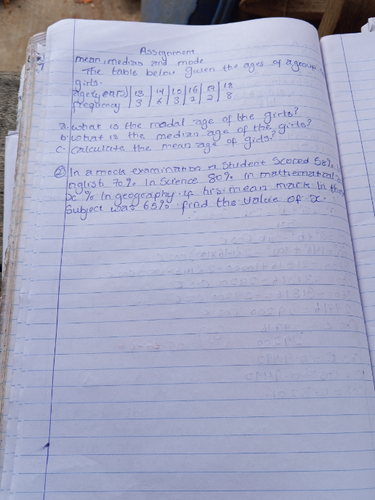 Assignment
mean, median and mode
The table below given the ages of a group
girls.
age (years) | 13 | 14 | 15 | 16 | 17 | 18
frequency | 3 | 6 | 3 | 2 | 2 | 8
a. what is the modal age of the girls?
b. what is the median age of the girls?
c. calculate the mean age of girls?
② In a mock examination a student scored 58%
nglish 70% In Science 80% in mathematical
x % In geography. if his mean mark In the
Subject was 65% find the value of x.